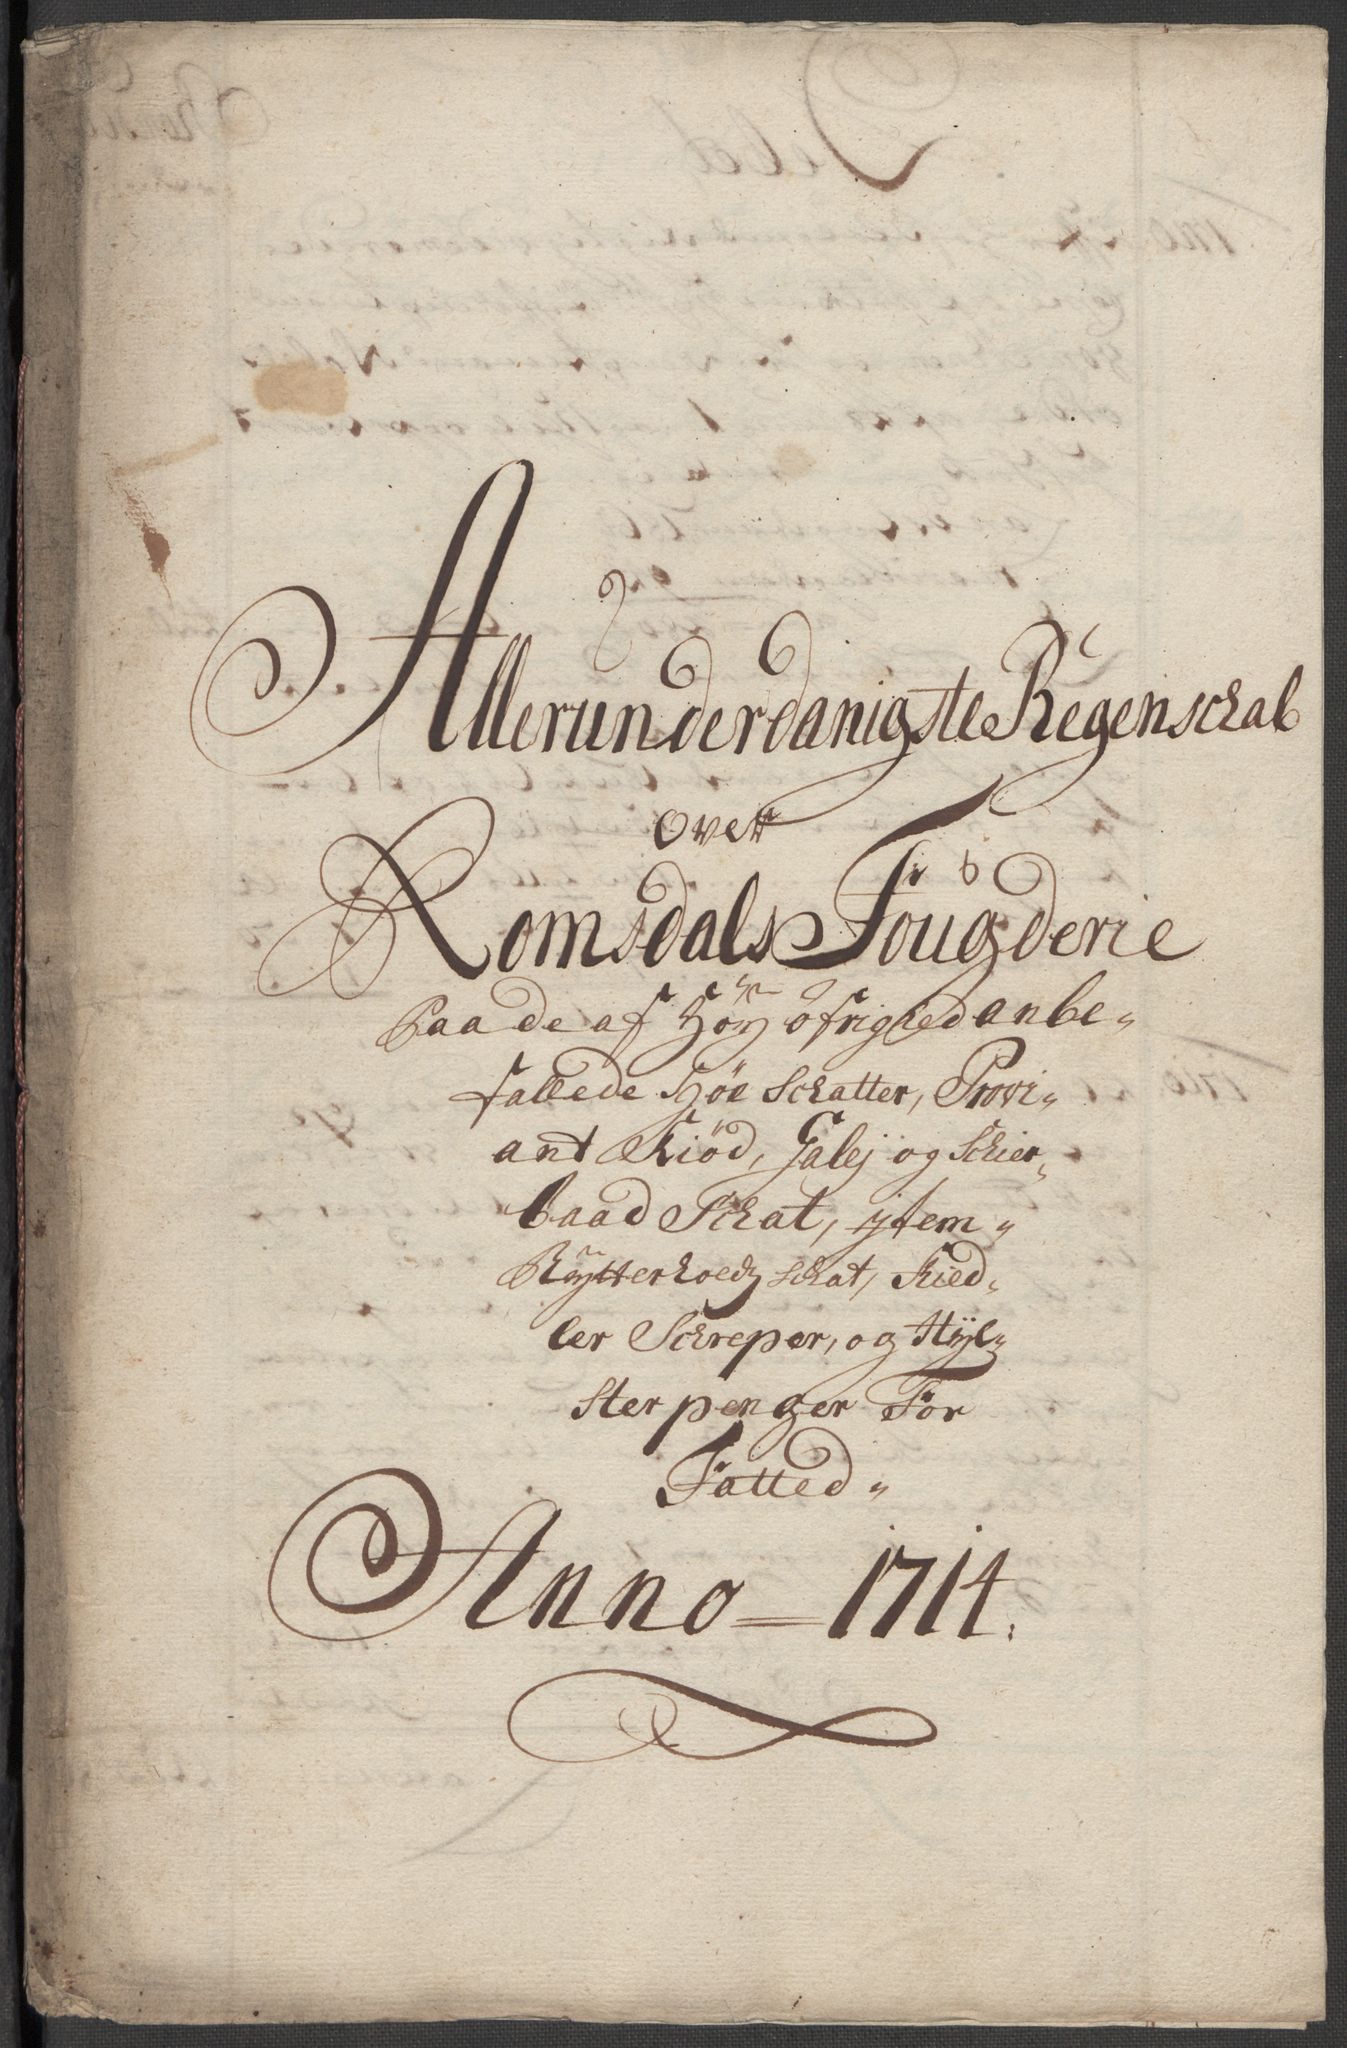 Allerunderdanigste Regenschab
over
Romsdals Fougderie
Paa de af Höy öfrighed anbe„
fallede Schatter, Provi„
ant Kiöd, Galej og Schier„
baad Schat, jtem„
Rÿtterhoedz schat, Kied„
ler Schreper, og Hÿl„
ster penger For
Fatted„
Anno = 1714.